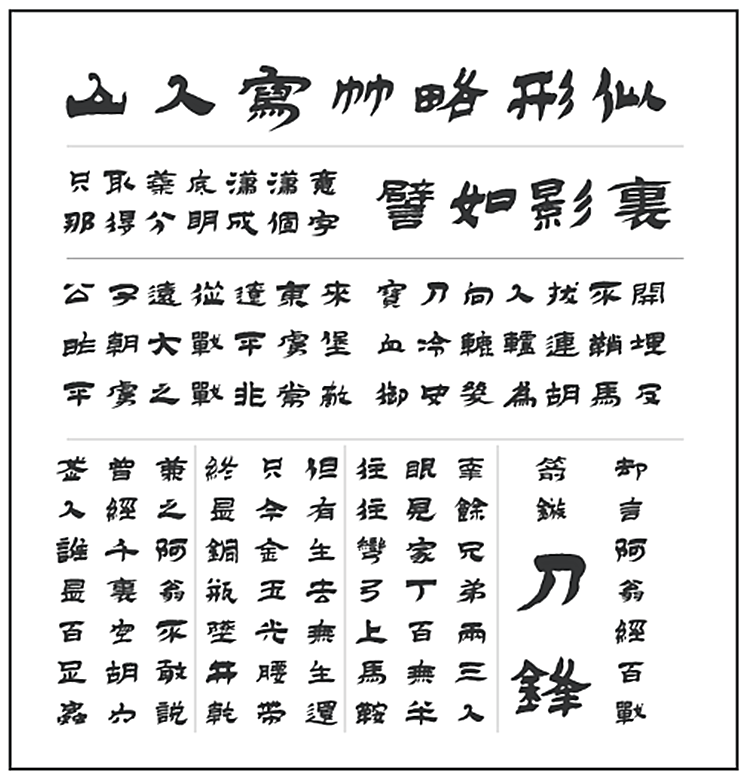 山人寫竹略形似
只取葉底瀟瀟意
那得分明成個字
譬如影裏
公子遠從遼東來
昨朝大戰平虜堡
平虜之戰非常敵
寶刀向人拔不開
血冷轆轤連鞘埋
御史幾為胡馬及
却言阿翁經百戰
箭鏃刀鋒
幸餘兄弟兩三人
眼見家丁百無半
往往彎弓上馬鞍
但有生去無生還
只今金玉光腰帶
終是銅瓶墜井乾
兼之阿翁不敢說
曾經千裏空胡穴
人誰是百足蟲